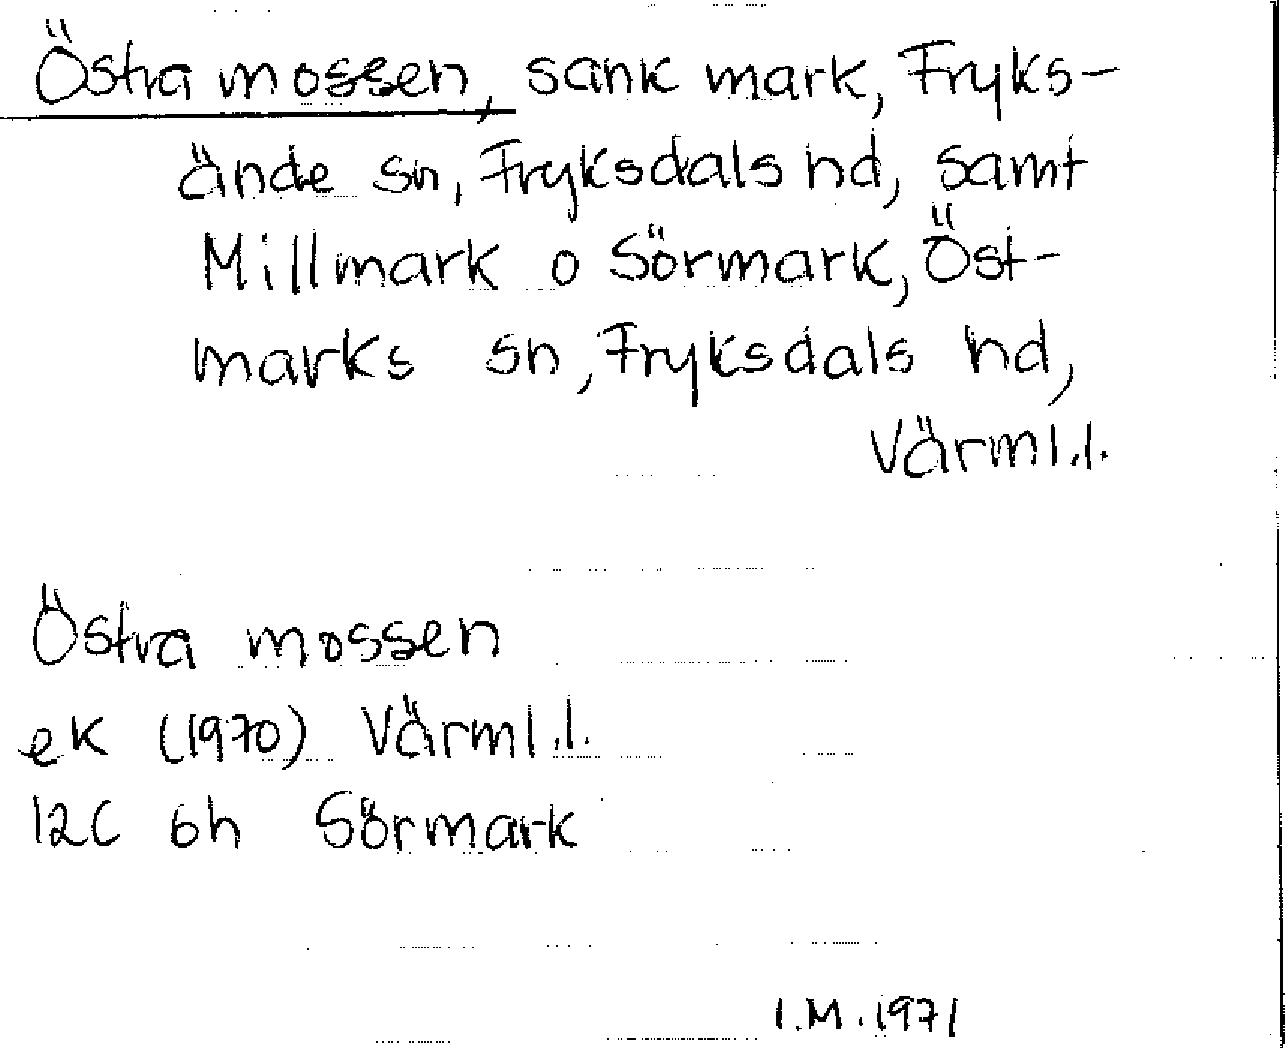 Östra mossen, sank mark, Fryks-
ände sn, Fryksdals hd, samt
Millmark o Sörmark, Öst-
marks sn, Fryksdals hd,
Värml.l.
Östra mossen
ek (1970) Värml.l.
12C 6h Sörmark
I.M. 1971